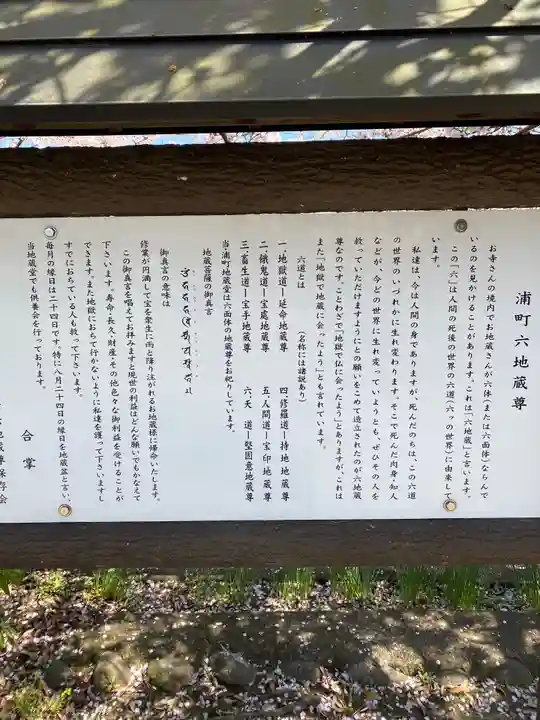 浦町六地蔵尊
お寺さんの境内でお地蔵さんが六体(または六面体)ならんで
いるのを見かけることがあります。これは「六地蔵」と言います。
この「六」は人間の死後の世界の六道(六ッの世界)に由来して
います。
私達は、今は人間の身でありますが、死んだのちは、この六道
の世界のいづれかに生れ変わります。そこで死んだ肉身・知人
などが、今どの世界に生れ変っていようとも、ぜひその人を
救っていただけますようにとの願いをこめて造立されたのが六地蔵
尊なのです。ことわざで「地獄で仏に会ったよう」とありますが、これは
また「地獄で地蔵に会ったよう」とも言れています。
六道とは (名称には諸説あり)
一、地獄道ー延命地蔵尊 四、修羅道ー持地地蔵尊
二、餓鬼道ー宝処地蔵尊 五、人間道ー宝印地蔵尊
三、畜生道ー宝手地蔵尊 六、天 道ー堅固意地蔵尊
当浦町地蔵堂は六面体の地蔵尊をお祀りしています。
地蔵菩薩の御真言
御真言の意味は
修業が円満して宝を衆生に雨と降り法がれるお地蔵様に帰命いたします。
この御真言を唱えてお拝みますと現世の利益はどんな願いでもかなえて
下さいます。寿命・長久・財産・その他色々な御利益を受けることが
できます。また地獄におちて行かないように私達を護って下さいますし
すでにおちている人も救って下さいます。
毎月の縁日は二十四日です。特に八月二十四日の縁日を地蔵盆と言い、
当地蔵堂でも供養会を行っております。
合掌
地蔵尊保存会